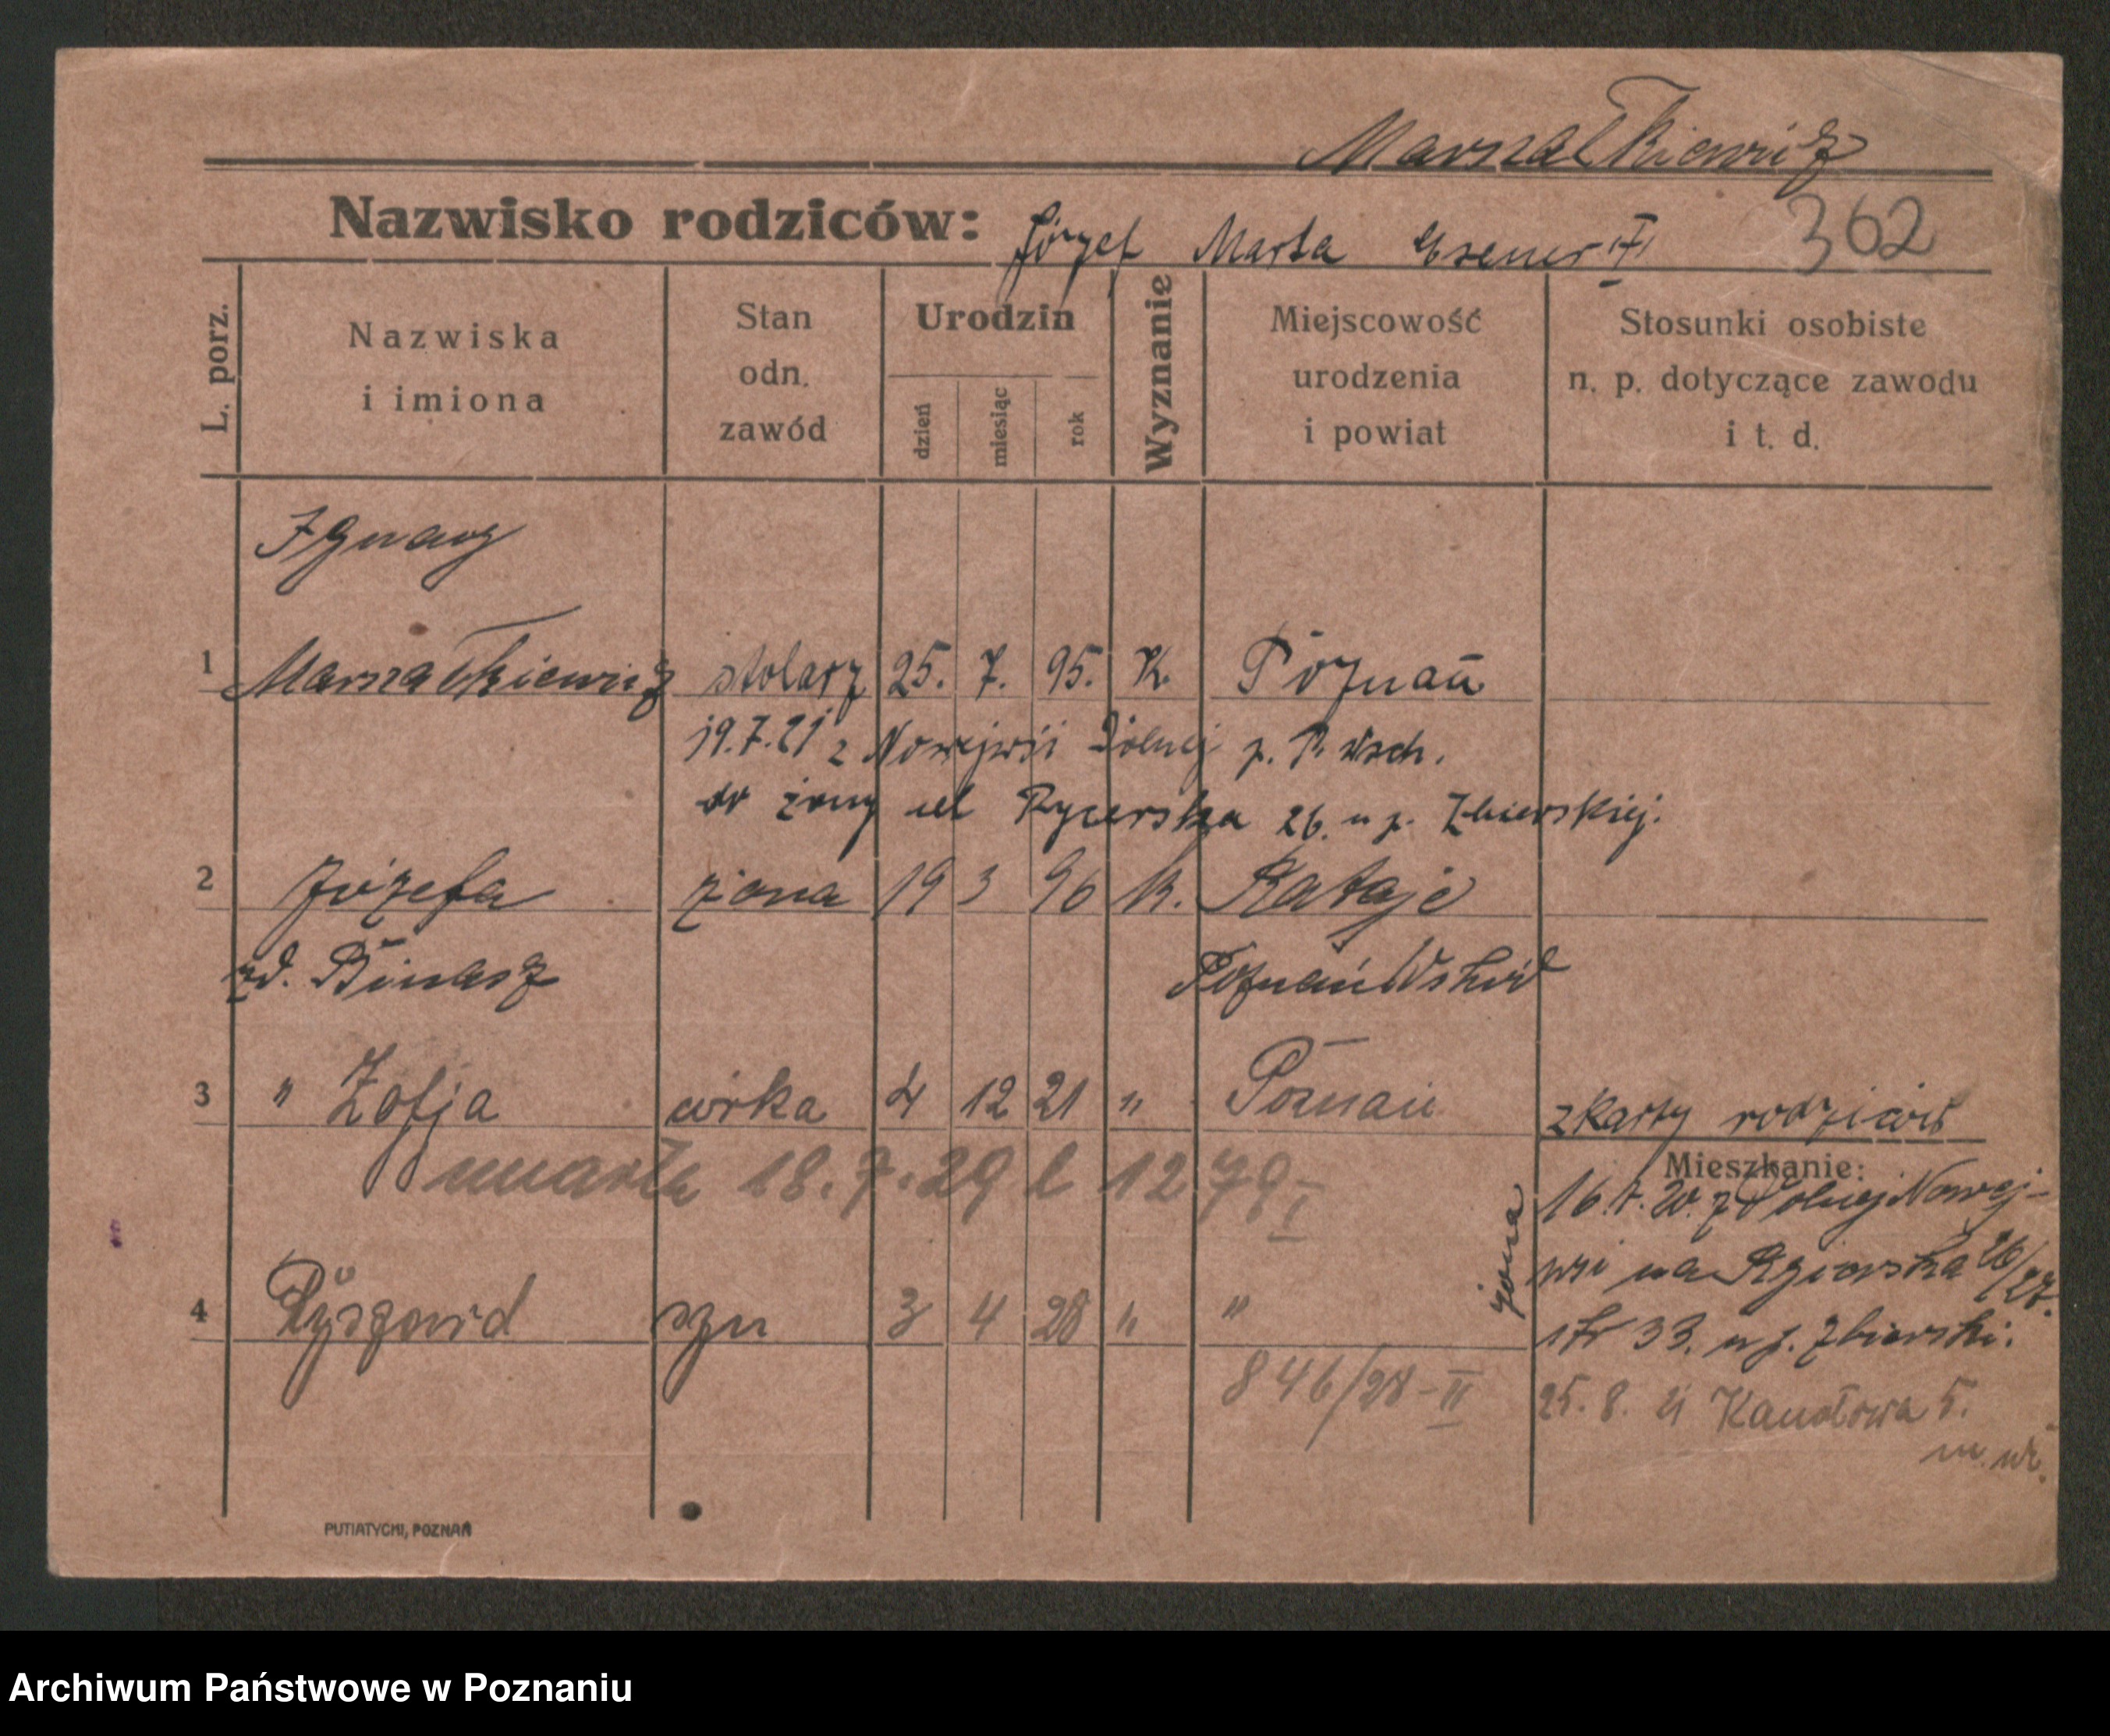 Marszałkiewicz
Nazwisko rodziców: Józef Marta 362
L. porz.
Nazwiska
i imiona
Stan
odn.
zawód
Urodzin
dzień
miesiąc
rok
Wyznanie
Miejscowość
urodzenia
i powiat
Stosunki osobiste
n. p. dotyczące zawodu
i t. d.
Ignacy
1 Marszałkiewicz stolarz 25. 7. 95. K. Poznań
19.7.21 z Nowejwsi Dolnej p. P. wsch.
do żony ul Rycerska 26. u p. Zbierskiej.
2 Józefa żona 19 3 96 K. Rataje
zd. Binasz Poznań Wschód
3 " Zofja córka 4 12 21 " Poznań z karty rodziców
umarła 18.7.29 l 1279 I
Mieszkanie:
żona
16. 7. 20. z Dolnej Nowej-
wsi na Rycerska 26/27.
33. u p. Zbierski.
4 Ryszard syn 3 4 28 " "
846/28-II
25. 8. 21 Kanałowa 5.
PUTIATYCKI, POZNAŃ
Archiwum Państwowe w Poznaniu